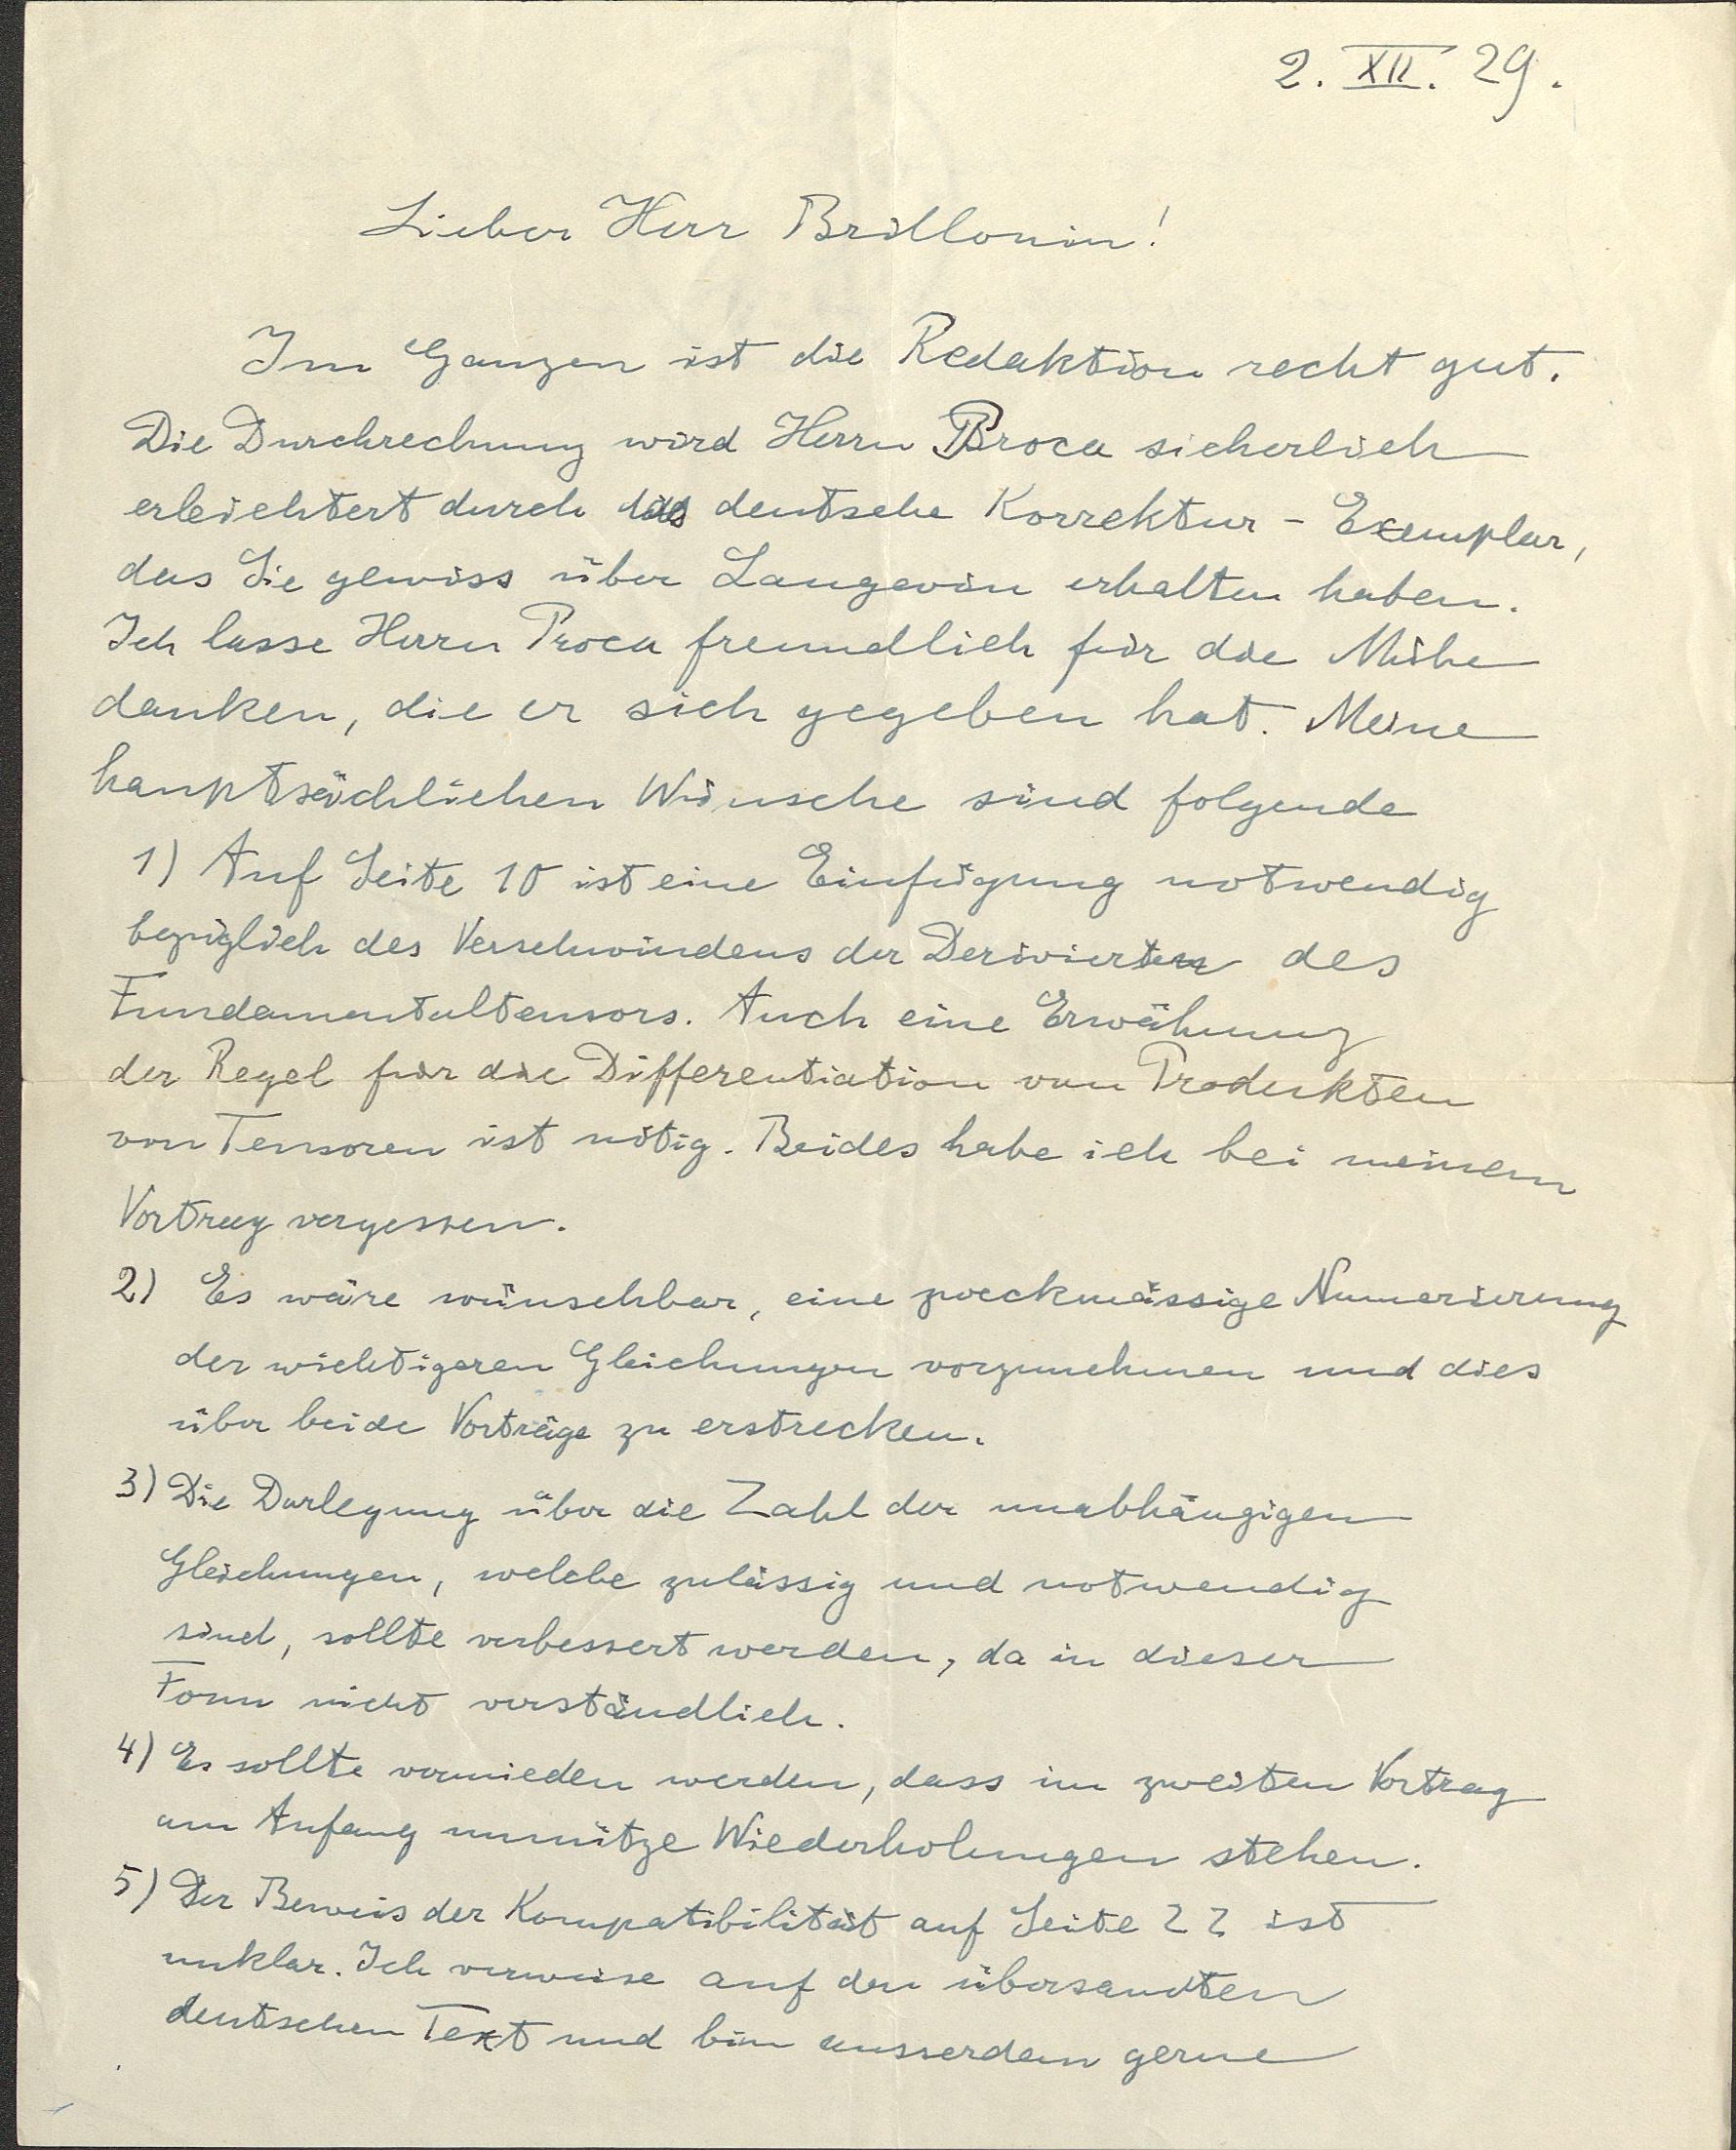 2. XII. 29.
Lieber Herr Brillouin!
Im Ganzen ist die Redaktion recht gut.
Die Durchrechnung wird Herrn Proca sicherlich
erleichtert durch das deutsche Korrektur-Exemplar,
das Sie gewiss über Langevin erhalten haben.
Ich lasse Herrn Proca freundlich für die Mühe
danken, die er sich gegeben hat. Meine
hauptsächlichen Wünsche sind folgende
1) Auf Seite 10 ist eine Einfügung notwendig
bezüglich des Verschwindens der Derivierten des
Fundamentaltensors. Auch eine Erwähnung
der Regel für die Differentiation von Produkten
von Tensoren ist nötig. Beides habe ich bei meinem
Vortrag vergessen.
2) Es wäre wünschbar, eine zweckmässige Numerierung
der wichtigeren Gleichungen vorzunehmen und dies
über beide Vorträge zu erstrecken.
3) Die Darlegung über die Zahl der unabhängigen
Gleichungen, welche zulässig und notwendig
sind, sollte verbessert werden, da in dieser
Form nicht verständlich.
4) Es sollte vermieden werden, dass im zweiten Vortrag
am Anfang unnütze Wiederholungen stehen.
5) Der Beweis der Kompatibilität auf Seite 22 ist
unklar. Ich verweise auf den übersandten
deutschen Text und bin ausserdem gerne